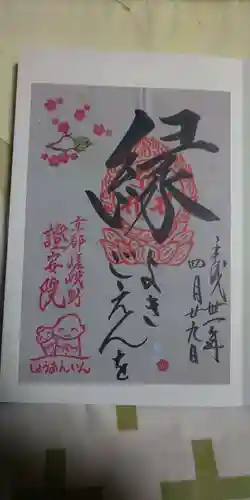 平成卅一年
四月廿九日
縁
よき
ごえんを
京都・嵯峨野
證安院
しょうあんいん